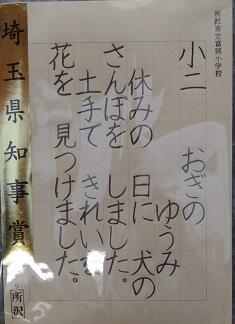 所沢市立富岡小学校
小二 おぎの ゆうみ
休みの 日に 犬の
さんぽを しました。
土手で きれいな
花を 見つけました。
埼玉県知事賞
所沢